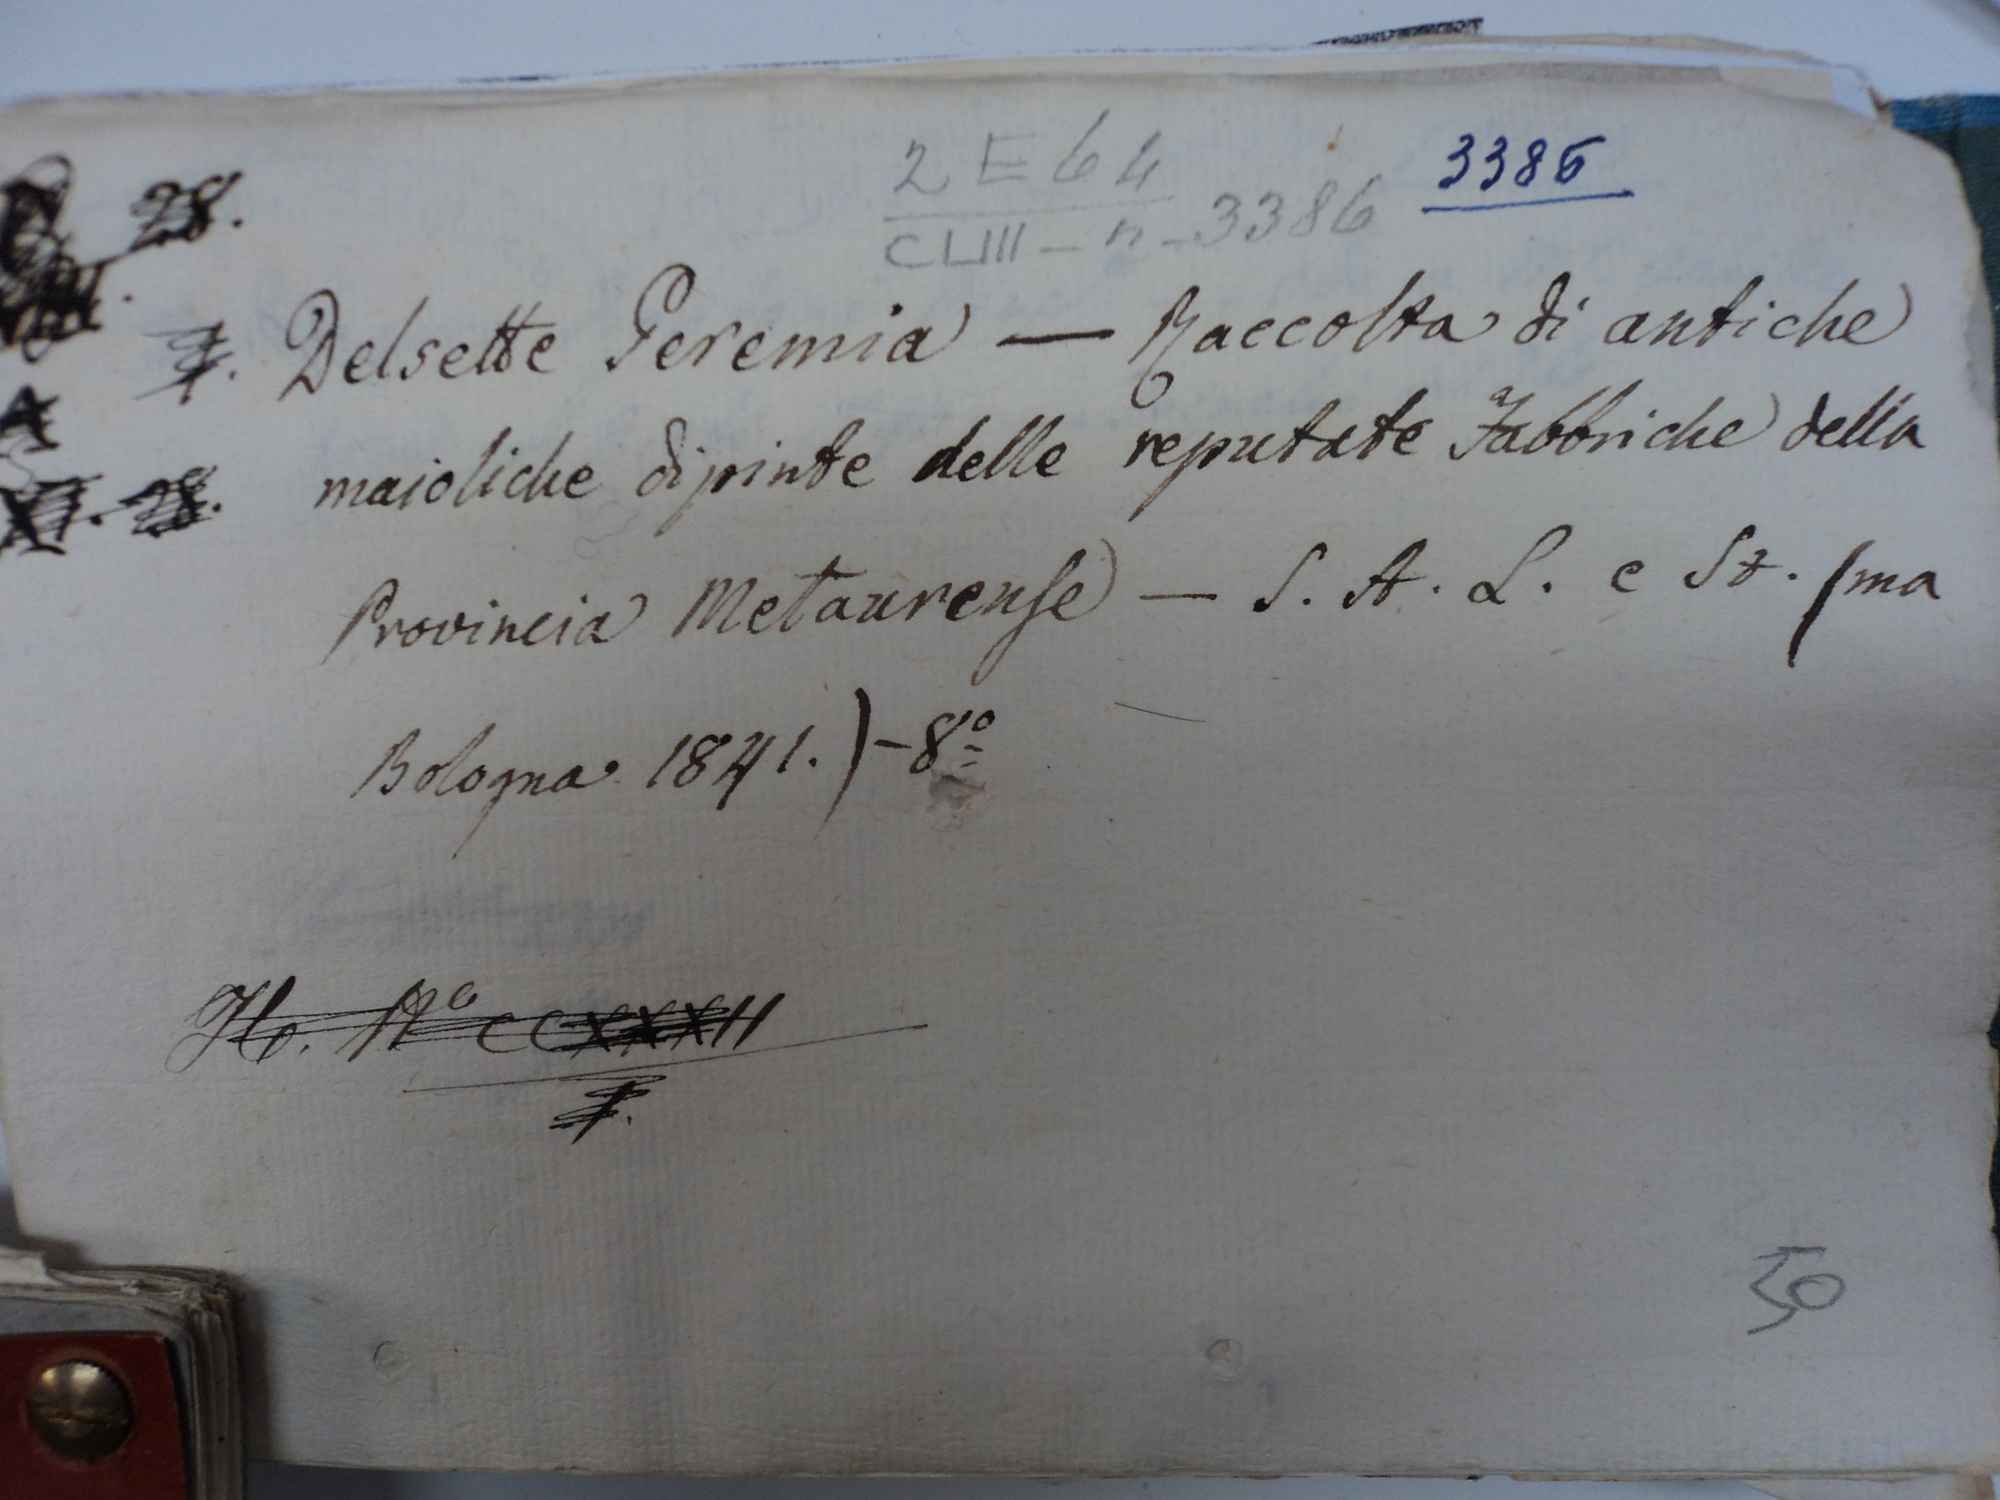 2 E 64
3386
28.
CLIII - n - 3386
7. Delsette Geremia — Raccolta di antiche
maioliche dipinte delle reputate Fabbriche della
XI. 28.
Provincia Metaurense — S. A. L. e St. (ma
Bologna 1841.) - 8º
H. Nº CCXXXII
7.
50